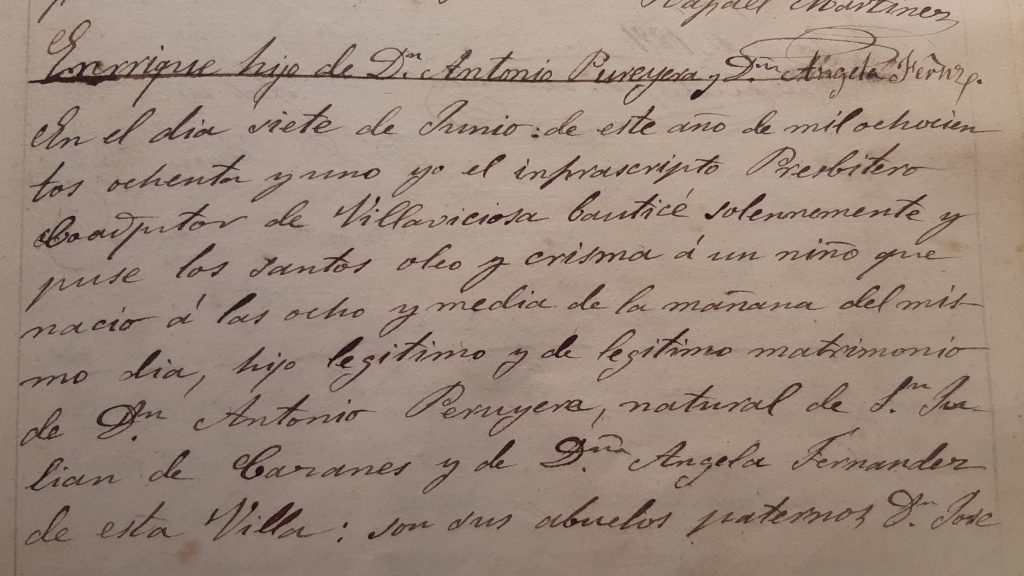 Rafael Martinez
Enrrique hijo de Dⁿ Antonio Pureyera y Dⁿᵃ Angela Fernz.
En el dia siete de Junio: de este año de mil ochocien
tos ochenta y uno yo el infrascripto Presbitero
Coadjutor de Villaviciosa bauticé solennemente y
puse los santos oleo y crisma á un niño que
nacio á las ocho y media de la mañana del mis-
mo dia, hijo legitimo y de legitimo matrimonio
de Dⁿ Antonio Peruyera, natural de Sⁿ Ju-
lian de Cazanes y de Dñᵃ Angela Fernandez
de esta Villa: son sus abuelos paternos Dⁿ Jose